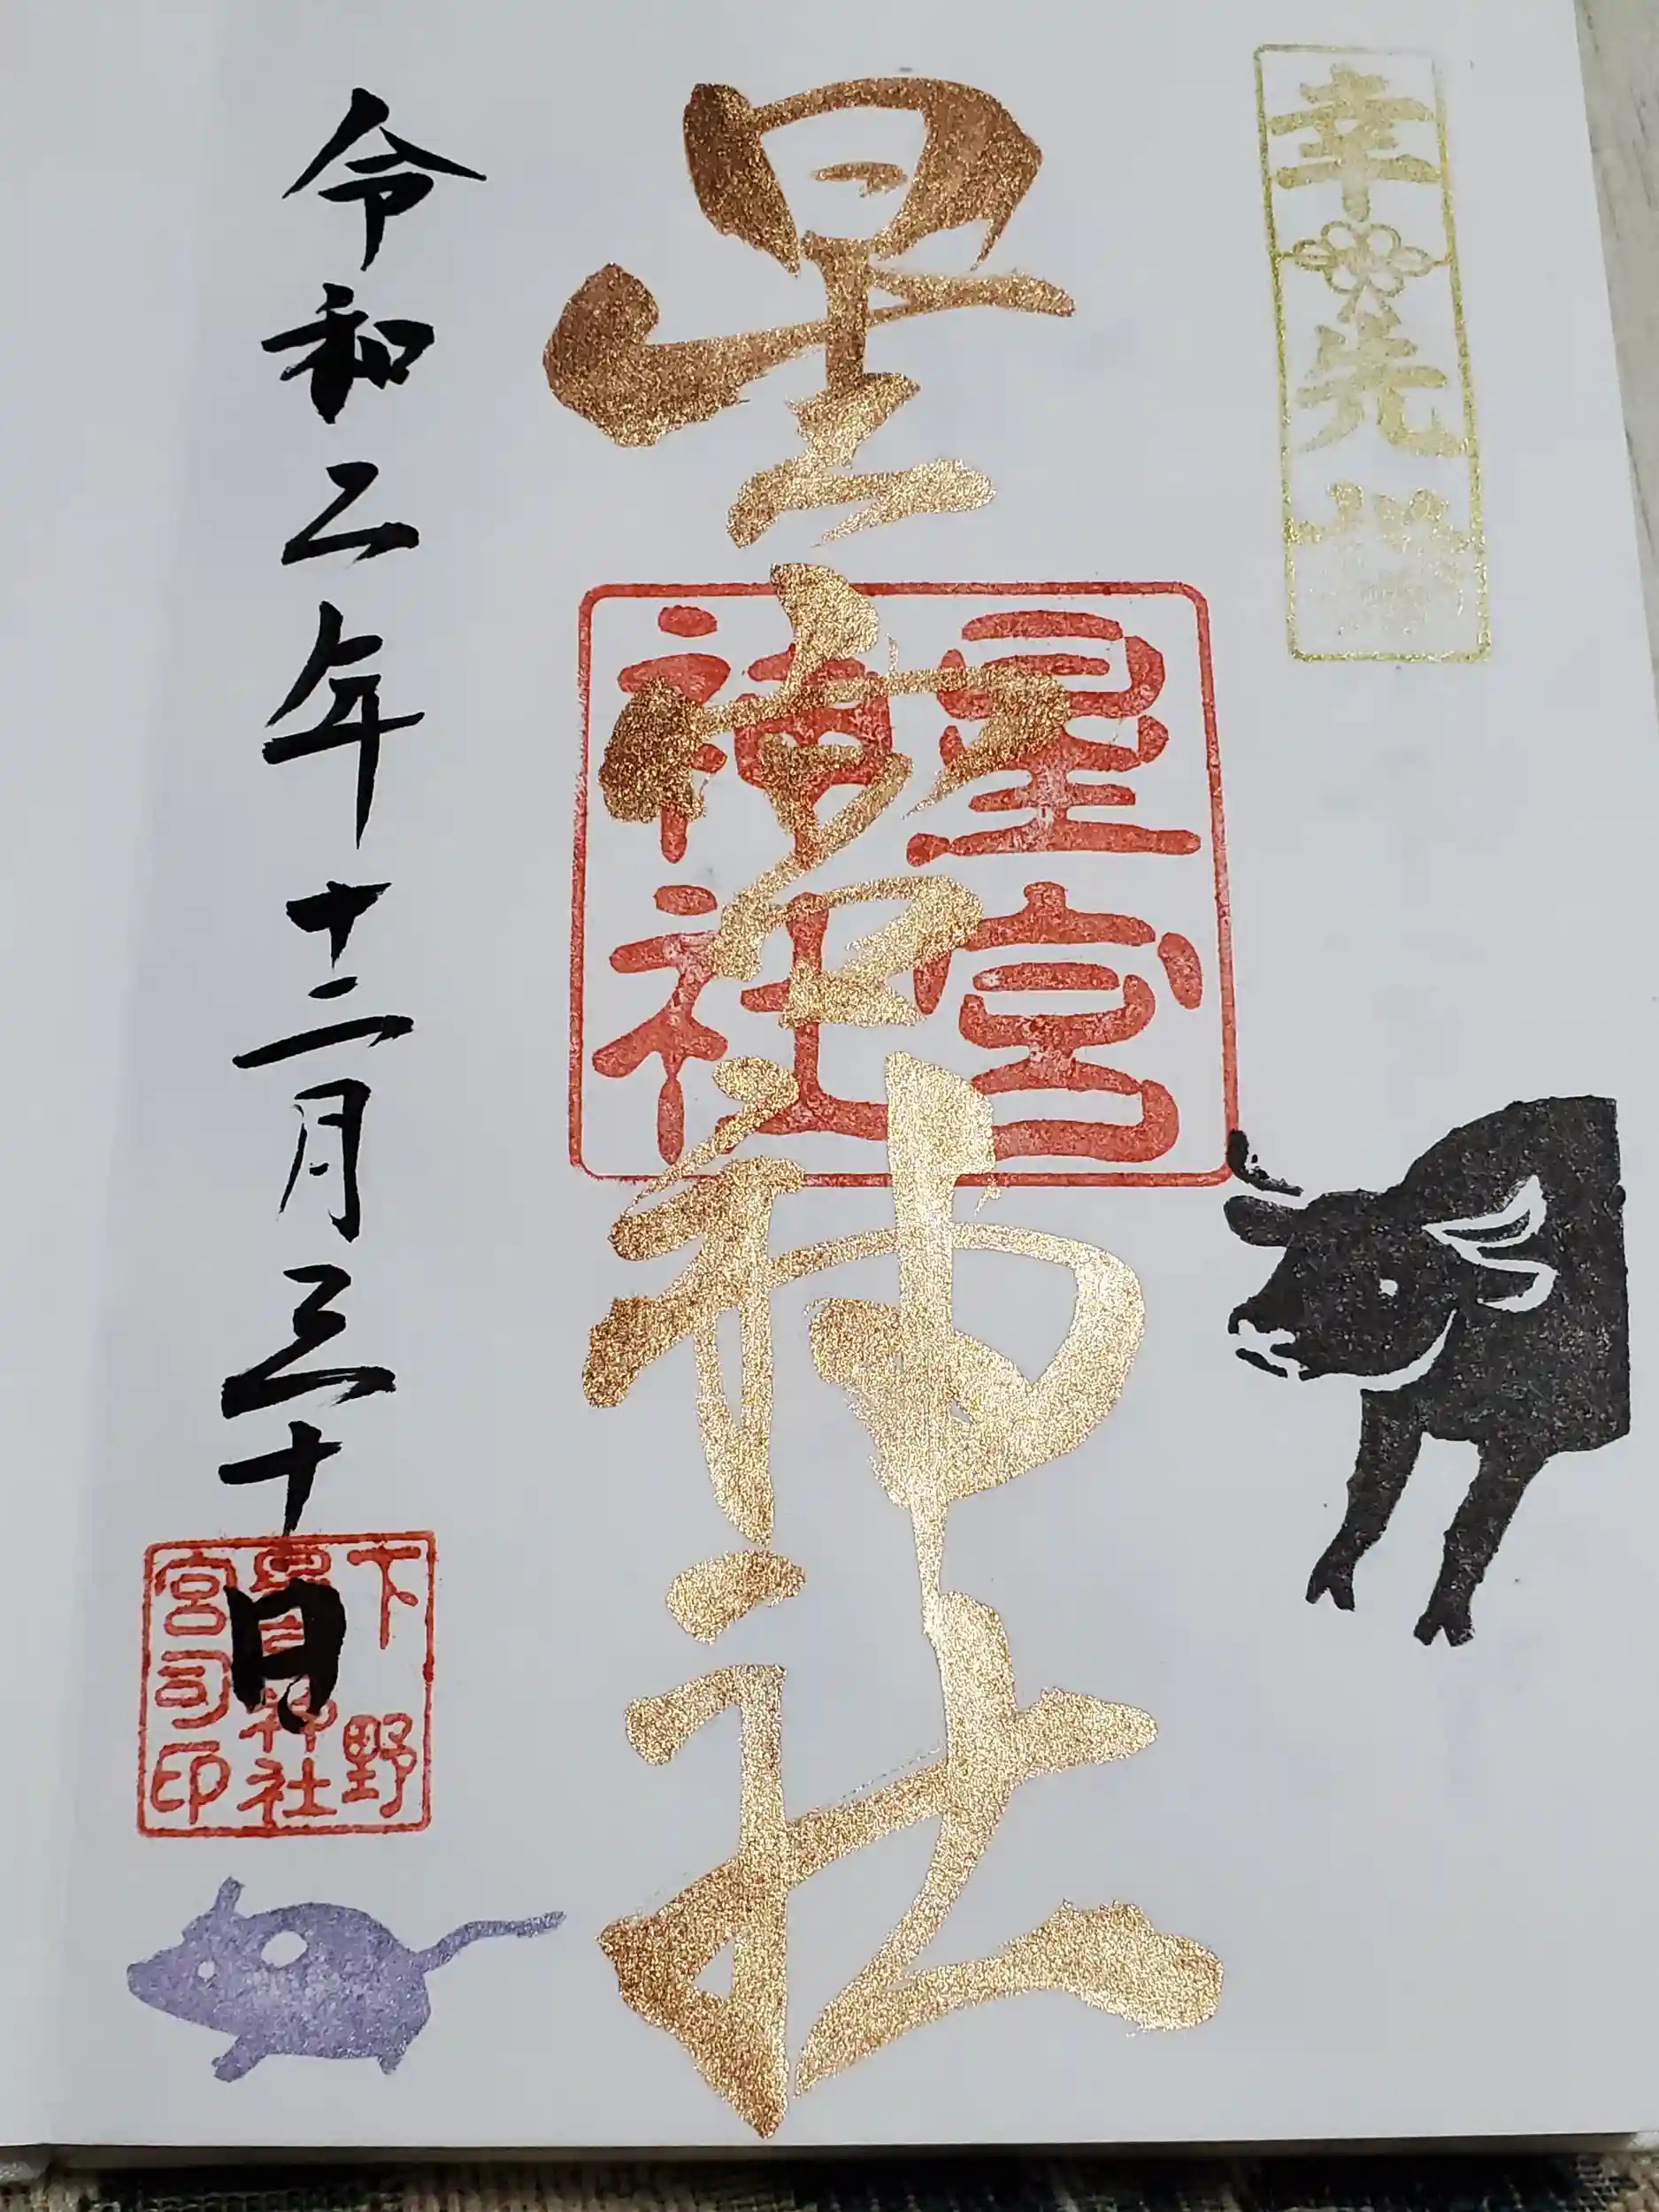 幸先詣
星宮神社
星宮神社
令和二年十二月三十日
下野
星宮神社
宮司印